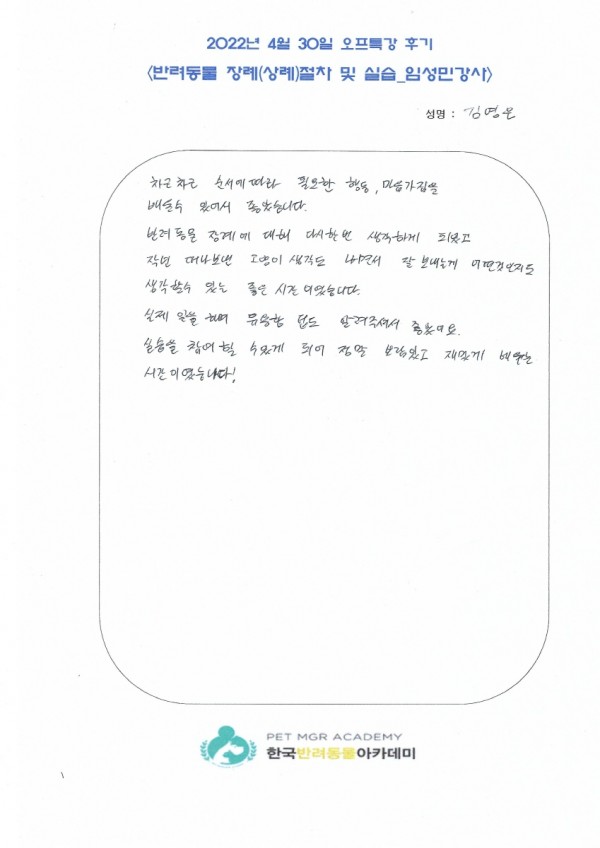 2022년 4월 30일 오프특강 후기
<반려동물 장례(상례)절차 및 실습_임성민강사>
성명 : 김명은
차근차근 순서에 따라 필요한 행동, 마음가짐을
배울수 있어서 좋았습니다.
반려동물 장례에 대해 다시한번 생각하게 되었고
작년 떠나보낸 고양이 생각도 나면서 잘 보내는게 어떤것인지도
생각할수 있는 좋은 시간이었습니다.
실제 일을 하며 유용한 팁도 알려주셔서 좋았어요.
실습을 참여할 수있게 되어 정말 보람있고 재밌게 배우는
시간이였습니다!
PET MGR ACADEMY
한국반려동물아카데미